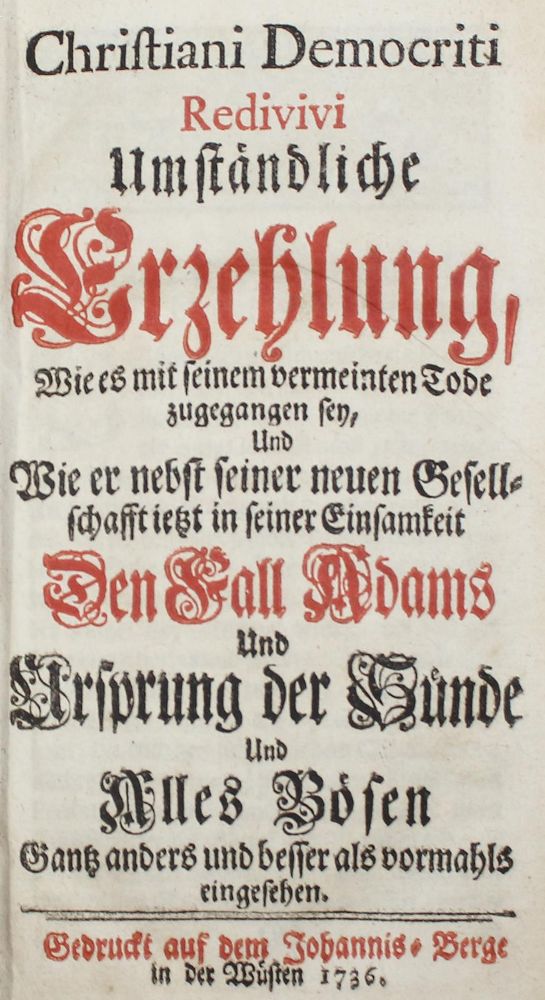 Christiani Democriti
Redivivi
Umständliche
Erzehlung,
Wie es mit seinem vermeinten Tode
zugegangen sey,
Und
Wie er nebst seiner neuen Gesell-
schafft ietzt in seiner Einsamkeit
Den Fall Adams
Und
Ursprung der Sünde
Und
Alles Bösen
Gantz anders und besser als vormahls
eingesehen.
Gedruckt auf dem Johannis-Berge
in der Wüsten 1736.